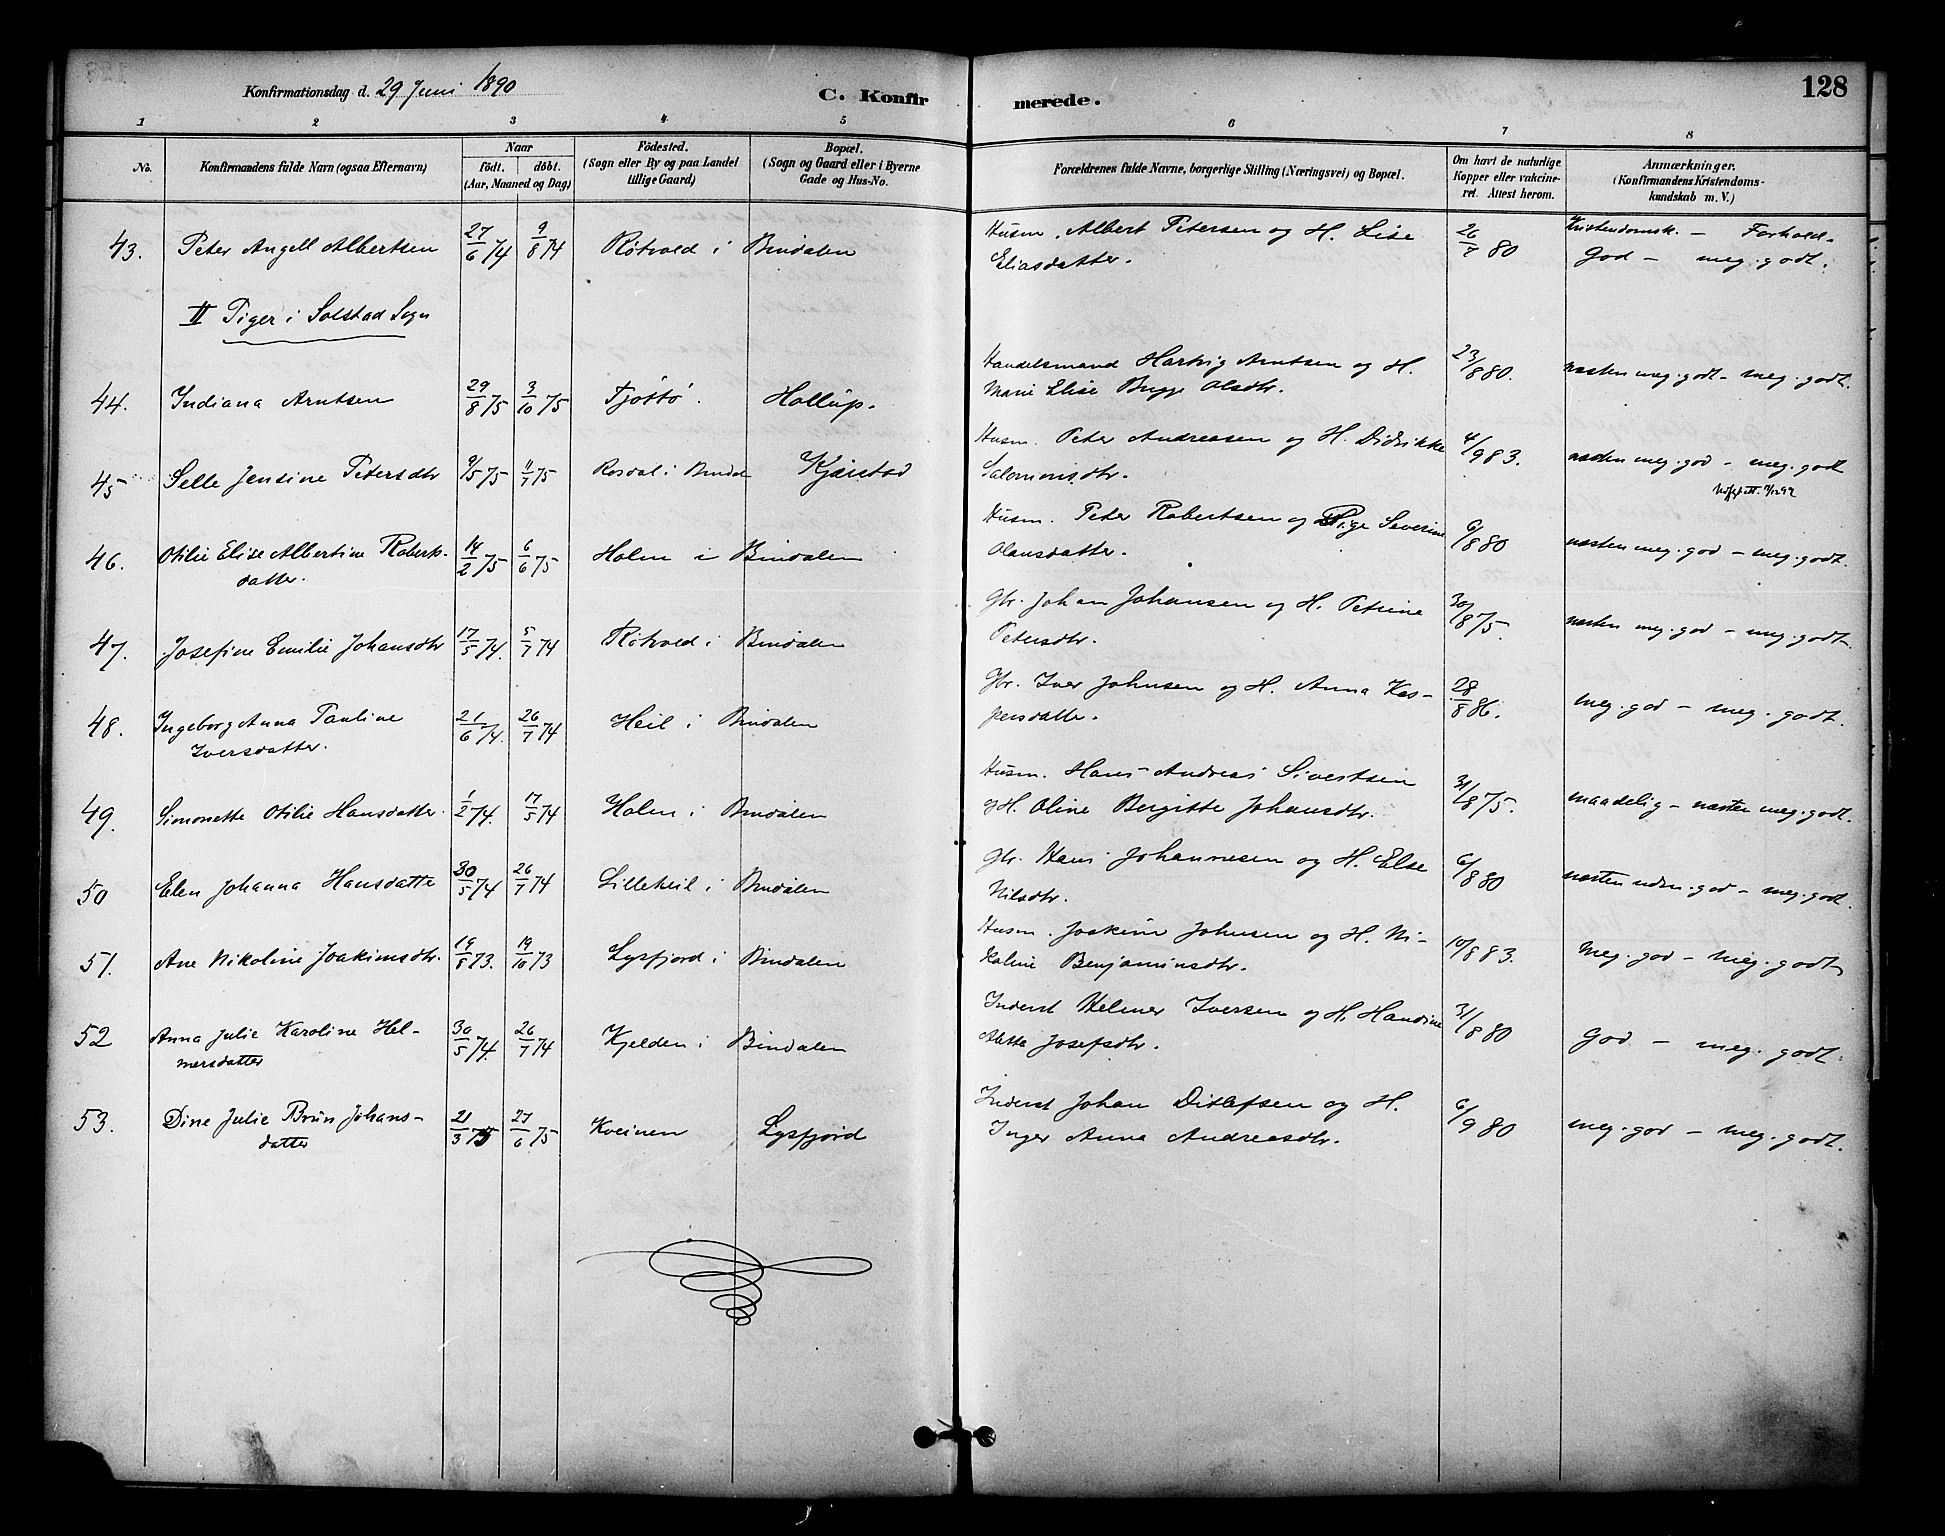 128
Konfirmationsdag d. 29 Juni 1890
C. Konfir merede.
1 2 3 4 5 6 7 8
No. Konfirmandens fulde Navn (ogsaa Efternavn) Naar födt. döbt. (Aar, Maaned og Dag) Födested. (Sogn eller By og paa Landet tillige Gaard) Bopæl. (Sogn og Gaard eller i Byerne Gade og Hus-No. Forældrenes fulde Navne, borgerlige Stilling (Næringsvei) og Bopæl. Om havt de naturlige Kopper eller vakcineret. Attest herom. Anmærkninger. (Konfirmandens Kristendomskundskab m. V.)
43. Peter Angell Albertsen 27/6 74 9/8 74 Røtvold i Bindalen Husm. Albert Petersen og H. Lise 26/7 80 Kristendomsk. – Forhold.
Eliasdatter. God – meg. godt.
II Piger i Solstad Sogn
44. Indiana Arntsen 29/8 75 3/10 75 Tjøttø. Hollup. Handelsmand Hartvig Arntsen og H. 23/8 80. næsten meg. godt – meg. godt.
Marie Elise Brygge Olsdtr.
45 Selle Jensine Petersdtr 9/5 75 11/7 75 Rosdal i Bindal Kjærstad Husm. Peter Andreasen og H. Didrikke 4/9 83. næsten meg. god – meg. godt
Salomonsdtr.
46. Otilie Elise Albertine Roberts- 14/2 75 6/6 75 Holm i Bindalen Husm. Peter Robertsen og Pige Severine 6/8 80 næsten meg. god – meg. godt.
datter. Olausdatter.
47. Josefine Emilie Johansdtr 17/5 74. 5/7 74 Røtvold i Bindalen Gbr. Johan Johansen og H. Petrine 30/8 75. næsten meg. god – meg. godt.
Petersdtr.
48. Ingeborg Anna Pauline 21/6 74. 26/7 74 Heil i Bindalen Gbr. Iver Johnsen og H. Anna Kas- 28/8 86. meg. god – meg. godt.
Iversdatter. persdatter.
49. Simonette Otilie Hansdatter. 1/2 74. 17/5 74 Holm i Bindalen Husm. Hans Andreas Sivertsen 31/8 75. maadelig – næsten meg. godt.
og H. Oline Bergitte Johansdtr.
50 Elen Johanna Hansdatte 30/5 74 26/7 74 Lilleheil i Bindalen Gbr. Hans Johannesen og H. Else 6/8 80 næsten udm. god – meg. godt.
Nilsdtr.
51. Ane Nikoline Joakimsdtr. 19/8 73. 19/10 73 Lysfjord i Bindalen Husm. Joakim Johnsen og H. Ni- 10/8 83. Meg. god – meg. godt
koline Benjaminsdtr.
52 Anna Julie Karoline Hel- 30/5 74. 26/7 74 Kjelden i Bindalen Inderst Helmer Iversen og H. Handine 31/8 80 God – meg. godt.
mersdatter Aletta Josefsdtr.
53. Dine Julie Brun Johans- 21/3 75 27/6 75 Kveinen Lysfjord Inderst Johan Ditlefsen og H. 6/9 80 meg. god – meg. godt.
datter Inger Anna Andreasdtr.